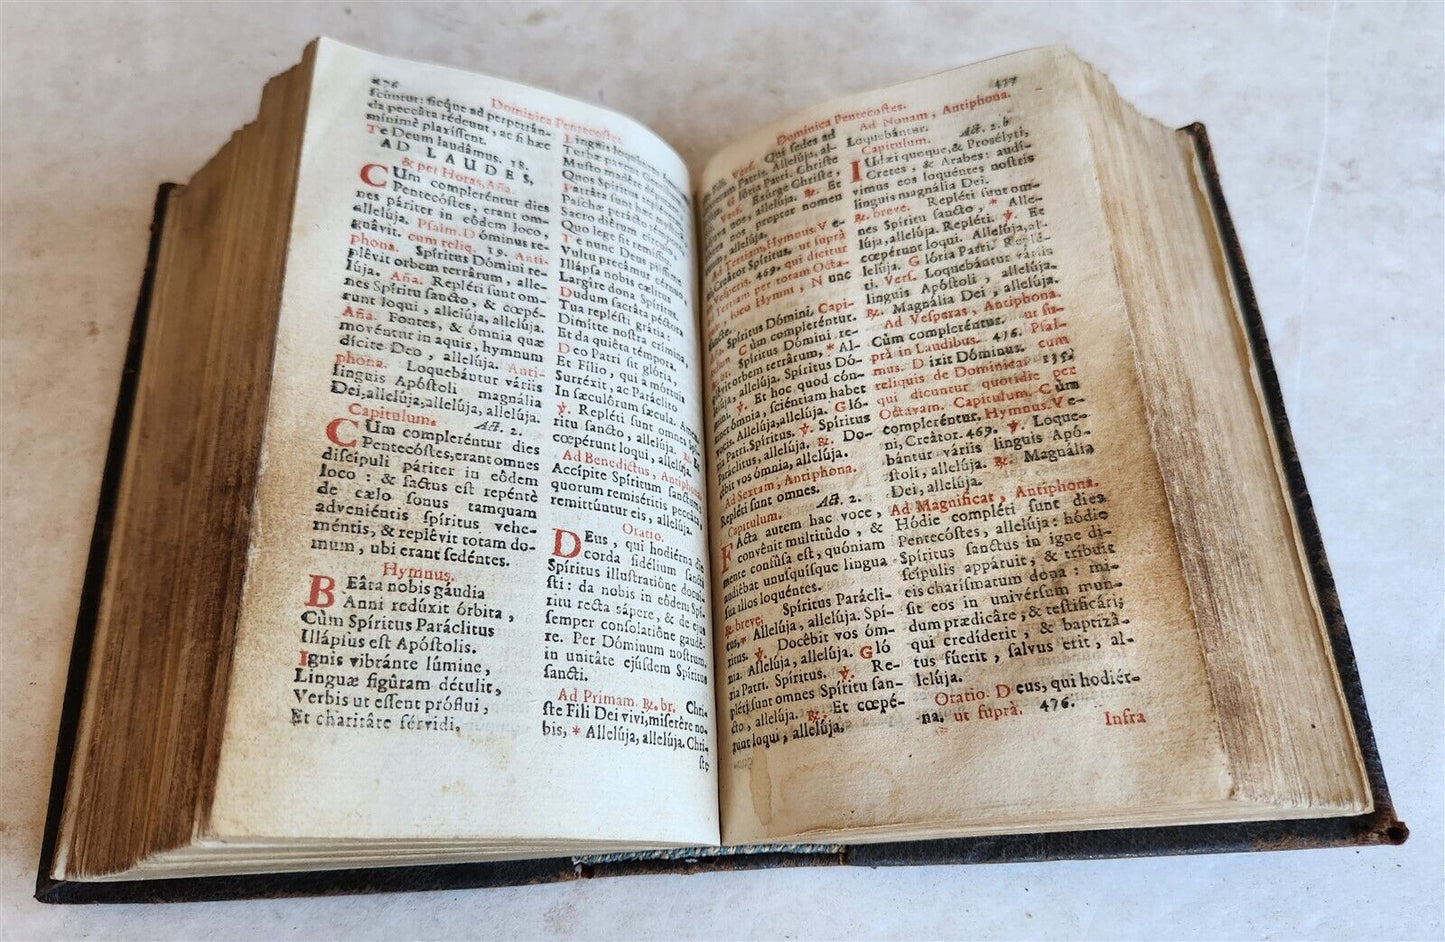 476
Dominica Pentecostes.
scúntur: sicque ad perpetrân-
da peccâta redeunt, ac si hæc
minimè planxissent.
Te Deum laudâmus. 18.
AD LAUDES,
& per Horas, Aña.
CUm complerentur dies
Pentecóstes, erant om-
nes páriter in eôdem loco,
allelúja. Psalm. Dóminus re-
gnâvit. cum reliq. 19. Anti-
phona. Spíritus Dómini re-
plêvit orbem terrârum, alle-
lúja. Aña. Repléti sunt om-
nes Spíritu sancto, & cœpé-
runt loqui, allelúja, allelúja.
Aña. Fontes, & ómnia quæ
movéntur in aquis, hymnum
dícite Deo, allelúja. Anti-
phona. Loquebántur váriis
linguis Apóstoli magnália
Dei, allelúja, allelúja, allelúja.
Capitulum. Act. 2.
CUm compleréntur dies
Pentecóstes, erant omnes
discípuli páriter in eôdem
loco: & factus est repéntè
de cælo sonus tamquam
adveniéntis spíritus vehe-
méntis, & replêvit totam do-
mum, ubi erant sedéntes.
Hymnus.
BEâta nobis gáudia
Anni redúxit órbita,
Cùm Spíritus Paráclitus
Illápsus est Apóstolis.
Ignis vibránte lúmine,
Linguæ figûram détulit,
Verbis ut essent próflui,
Et charitâte férvidi.
Linguis loquúntur
Turbæ pavent
Musto madére
Quos Spíritus
Patrâta sunt hæc
Paschæ perácto témpore
Sacro diêrum
Quo lege fit remíssio.
Te nunc Deus piíssime
Vultu precâmur cérnuo,
Illápsa nobis cælitus
Largíre dona Spíritus.
Dudum sacrâta péctora
Tua replésti grátia:
Dimítte nostra crímina,
Et da quiêta témpora.
Deo Patri sit glória,
Et Fílio, qui à mórtuis
Surréxit, ac Paráclito
In sæculórum sæcula. Amen.
℣. Repléti sunt omnes Spí-
ritu sancto, allelúja. ℟. Et
cœpérunt loqui, allelúja.
Ad Benedictus, Antiphona
Accípite Spíritum sanctum:
quorum remiséritis peccáta,
remittúntur eis, allelúja.
Oratio.
DEus, qui hodiérna die
corda fidélium sancti
Spíritus illustratiône docuí-
sti: da nobis in eôdem Spí-
ritu recta sápere, & de ejus
semper consolatiône gaudê-
re. Per Dóminum nostrum.
in unitâte ejúsdem Spíritus
sancti.
Ad Primam. ℟. br. Chri-
ste Fili Dei vivi, miserêre no-
bis, * Allelúja, allelúja. Chri-
ste
477
Dominica Pentecostes.
Fili. Vers. Qui sedes ad
Patrem, allelúja, al-
Glória Patri. Christe
Vers. Exúrge Christe,
nos, allelúja. ℟. Et
nos propter nomen
allelúja.
Ad Tertiam, Hymnus. Ve-
Creâtor Spíritus, ut suprà
Vesperis. 469. qui dicitur
Tertiam per totam Octa-
loco Hymni, Nunc
sancte.
Spíritus Dómini. Capi-
Cùm compleréntur.
Spíritus Dómini re-
plêvit orbem terrârum, * Al-
lelúja, allelúja. Spíritus Dó-
mini. ℣. Et hoc quod cón-
tinet ómnia, sciéntiam habet
vocis. Allelúja, allelúja. Gló-
ria Patri. Spíritus. ℣. Spíritus
Paráclitus, allelúja. ℟. Do-
cébit vos ómnia, allelúja.
Ad Sextam, Antiphona.
Repléti sunt omnes.
Capitulum. Act. 2.
FActa autem hac voce,
convênit multitûdo, &
mente confúsa est, quóniam
audiébat unusquísque lingua
sua illos loquéntes.
℟. breve. Spíritus Parácli-
tus, * Allelúja, allelúja. Spí-
ritus. ℣. Docêbit vos óm-
nia. Allelúja, allelúja. Gló
ria Patri. Spíritus. ℣. Re-
pléti sunt omnes Spíritu san-
cto, allelúja. ℟. Et cœpé-
runt loqui, allelúja,
Ad Nonam, Antiphona.
Loquebántur. Act. 2. b
Capitulum.
IUdæi quoque, & Prosélyti,
Cretes, & Arabes: audí-
vimus eos loquéntes nostris
linguis magnália Dei.
℟. breve. Repléti sunt om-
nes Spíritu sancto, * Alle-
lúja, allelúja. Repléti. ℣. Et
cœpérunt loqui. Allelúja, al-
lelúja. Glória Patri. Replé-
ti. Vers. Loquebántur váriis
linguis Apóstoli, allelúja.
℟. Magnália Dei, allelúja.
Ad Vesperas, Antiphona.
Cùm compleréntur. ut su-
prà in Laudibus. 476. Psal-
mus. Dixit Dóminus. cum
reliquis de Dominica, 135.
qui dicuntur quotidie per
Octavam. Capitulum. Cùm
compleréntur. Hymnus. Ve-
ni, Creâtor. 469. ℣. Loque-
bántur váriis linguis Apó-
stoli, allelúja. ℟. Magnália
Dei, allelúja.
Ad Magnificat, Antiphona.
Hódie compléti sunt dies
Pentecóstes, allelúja: hódie
Spíritus sanctus in igne di-
scípulis appáruit, & tríbuit
eis charísmatum dona: mi-
sit eos in univérsum mun-
dum prædicâre, & testificári;
qui credíderit, & baptizâ-
tus fúerit, salvus erit, al-
lelúja.
Oratio. Deus, qui hodiér-
na. ut suprà. 476.
Infra